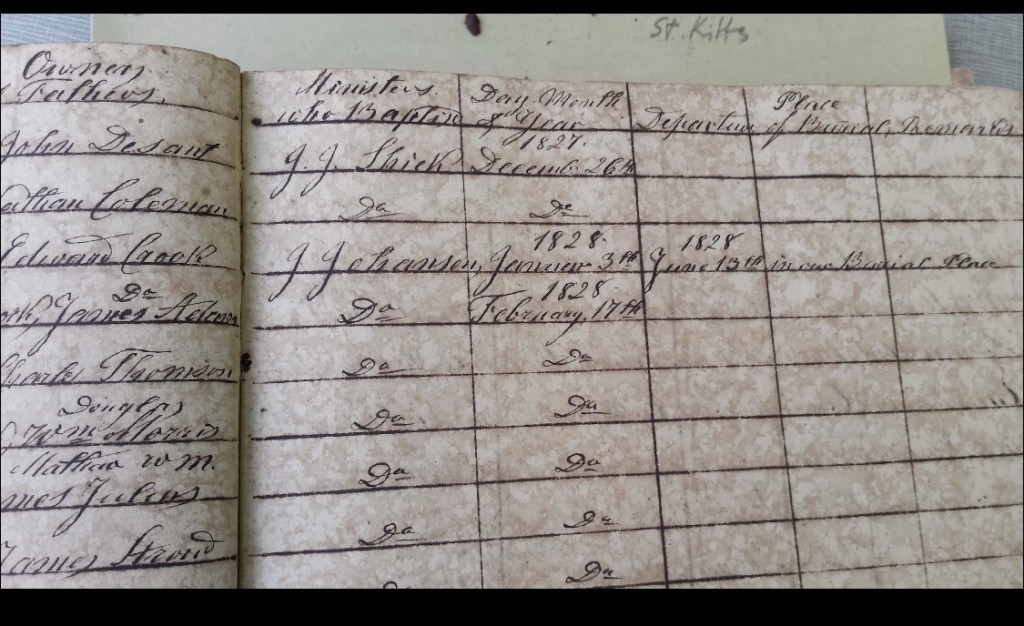 St. Kitts
Owners
Fathers.
Ministers
who Baptiz
Day, Month
& Year
Departure
Place
of Burial,
Remarks
John Desant
J. J. Shick
1827.
Decemb. 26th
athan Coleman
Do
Do
Edward Crook
J Johansen,
1828.
Januar 3th
1828
June 13th
in our Burial Place
Do
James
Do
1828
February, 17th
Charles Thomson
Do
Do
Douglas
Wm Morris
Do
Do
Mathew Wm.
mes Julius
Do
Do
James Stroud
Do
Do
Do